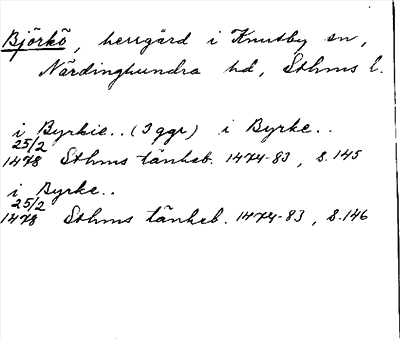 Björkö, herrgård i Knutby sn,
Närdinghundra hd, Sthms l.
i Byrkie.. (3 ggr) i Byrke..
25/2
1478 Sthms tänkeb. 1474-83, s.145
i Byrke..
25/2
1478 Sthms tänkeb. 1474-83, s.146